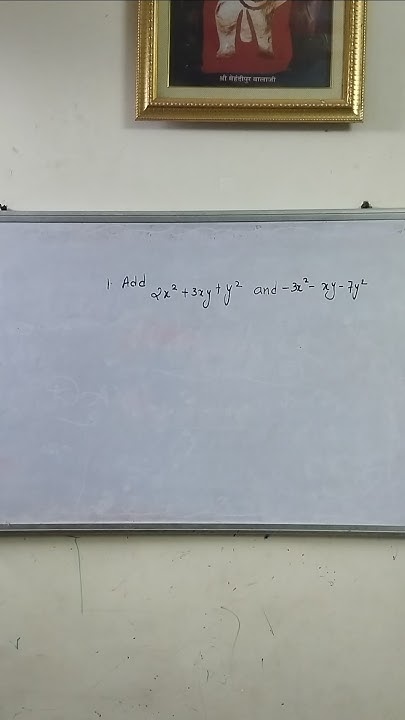 श्री मेहंदीपुर बालाजी
1. Add 2x² + 3xy + y² and -3x² - xy - 7y²